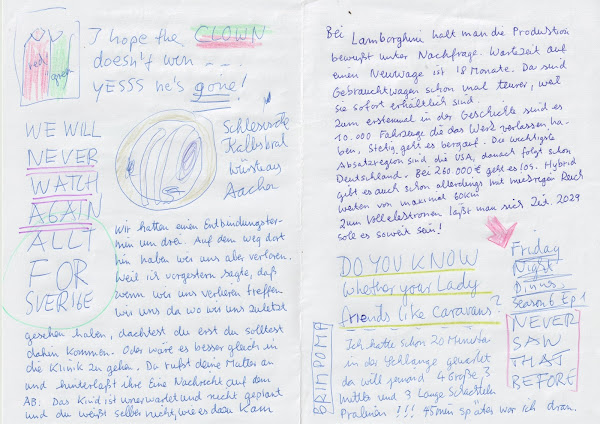 red
green
I hope the CLOWN
doesn't win ....
YESSS he's gone!
WE WILL
NEVER
WATCH
AGAIN
ALLT
FOR
SVERIGE
Schlesische
Kalbsbrat
würste aus
Aachen
Wir hatten einen Entbindungster-
min um drei. Auf dem Weg dort
hin haben wir uns aber verloren.
Weil ich vorgestern sagte, daß
wenn wir uns verlieren treffen
wir uns da wo wir uns zuletzt
gesehen haben, dachtest du erst du solltest
dahin kommen. Oder wäre es besser gleich in
die Klinik zu gehen. Du rufst deine Mutter an
und hinterläßt ihr eine Nachricht auf dem
AB. Das Kind ist unerwartet und nicht geplant
und du weißt selber nicht, wie es dazu kam
Bei Lamborghini hält man die Produktion
bewußt unter Nachfrage. Wartezeit auf
einen Neuwage ist 18 Monate. Da sind
Gebrauchtwagen schon mal teurer, weil
sie sofort erhältlich sind.
Zum erstenmal in der Geschichte sind es
10.000 Fahrzeuge die das Werk verlassen ha-
ben. Stetig geht es bergauf. Die wichtigste
Absatzregion sind die USA, danach folgt schon
Deutschland. Bei 260.000 € geht es los. Hybrid
gibt es auch schon allerdings mit niedrigen Reich
weiten von maximal 60km
Zum Vollelektronen läßt man sich Zeit. 2029
soll es soweit sein!
DO YOU KNOW
whether your Lady
friends like caravans?
Friday
Night
Dinner
Season 6 Ep 1
NEVER
SAW
THAT
BEFORE
BRIMPOMA
Ich hatte schon 20 Minuten
in der Schlange gewartet
da will jemand 4 Große 3
mittlere und 3 Lange Schachteln
Pralinen !!! 45min später war ich dran.